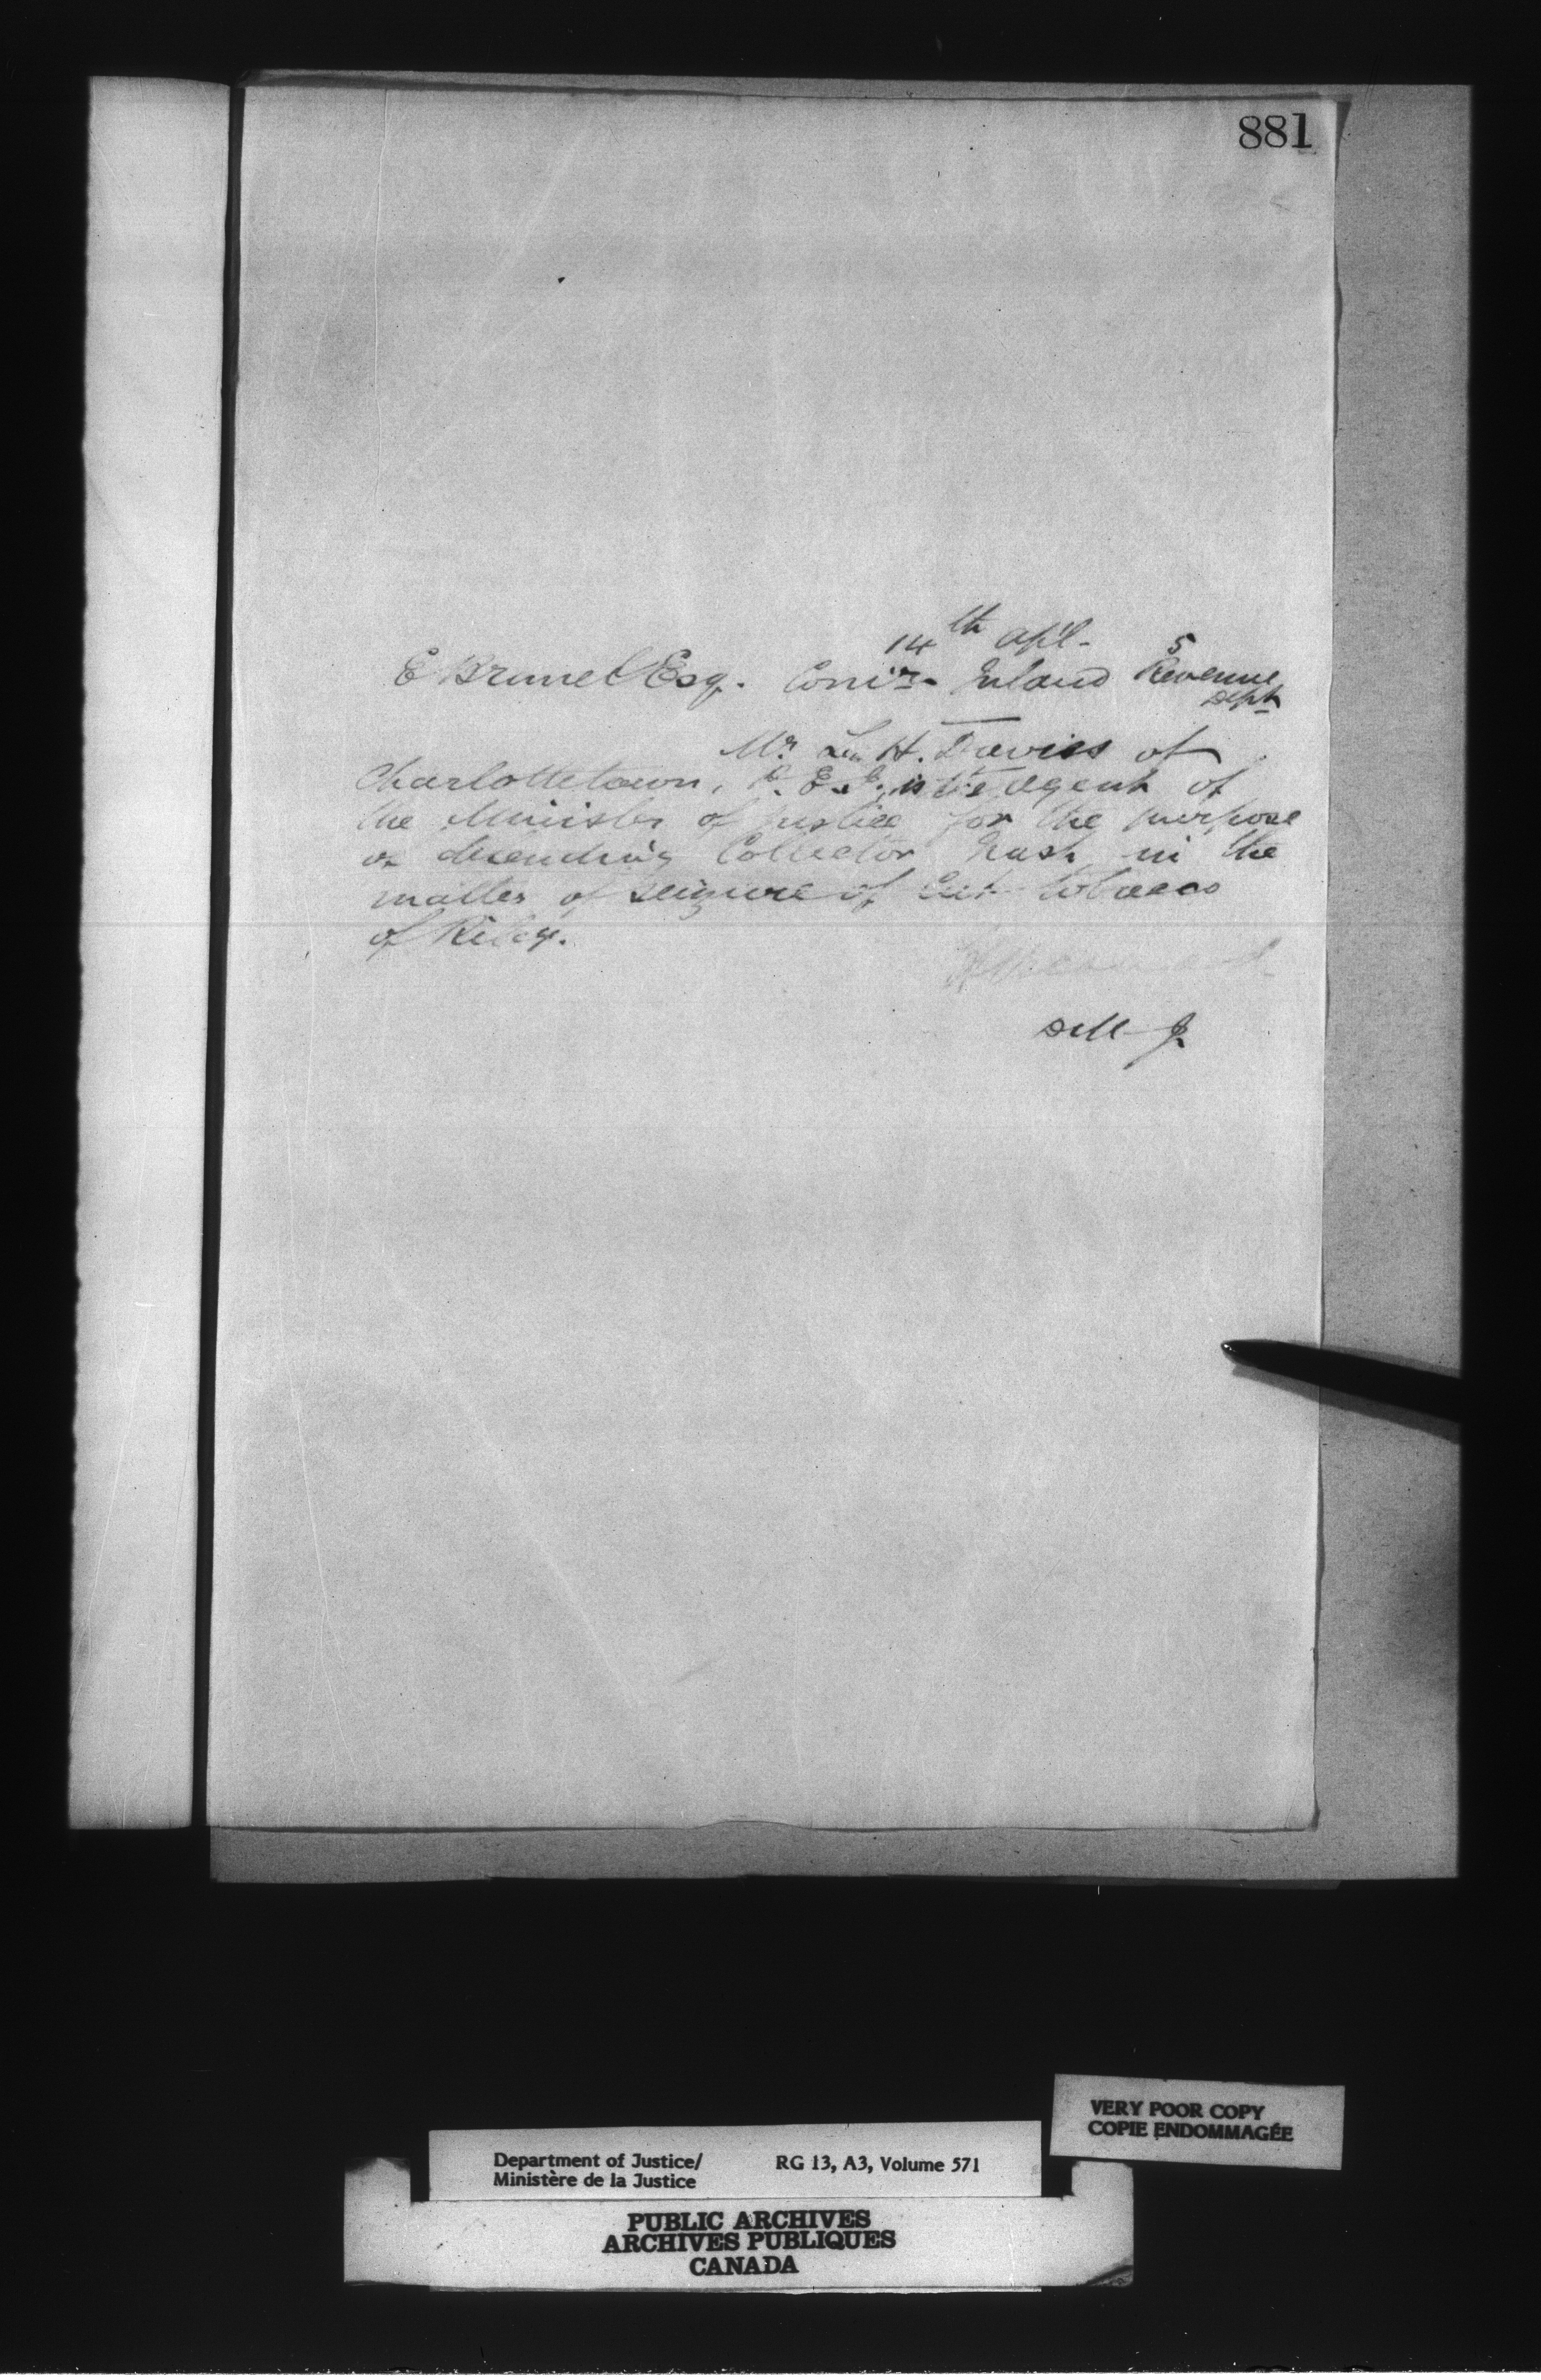 881
14th Apl. 5
E Brunel Esq. Com'r. Inland Revenue
Dept
Mr. L. H. Davies of
Charlottetown, P. E. I., is the Agent of
the Minister of Justice for the purpose
of defending Collector Nash in the
matter of seizure of Cut tobacco
of Riley.
D M J.
VERY POOR COPY
COPIE ENDOMMAGÉE
Department of Justice/ RG 13, A3, Volume 571
Ministère de la Justice
PUBLIC ARCHIVES
ARCHIVES PUBLIQUES
CANADA